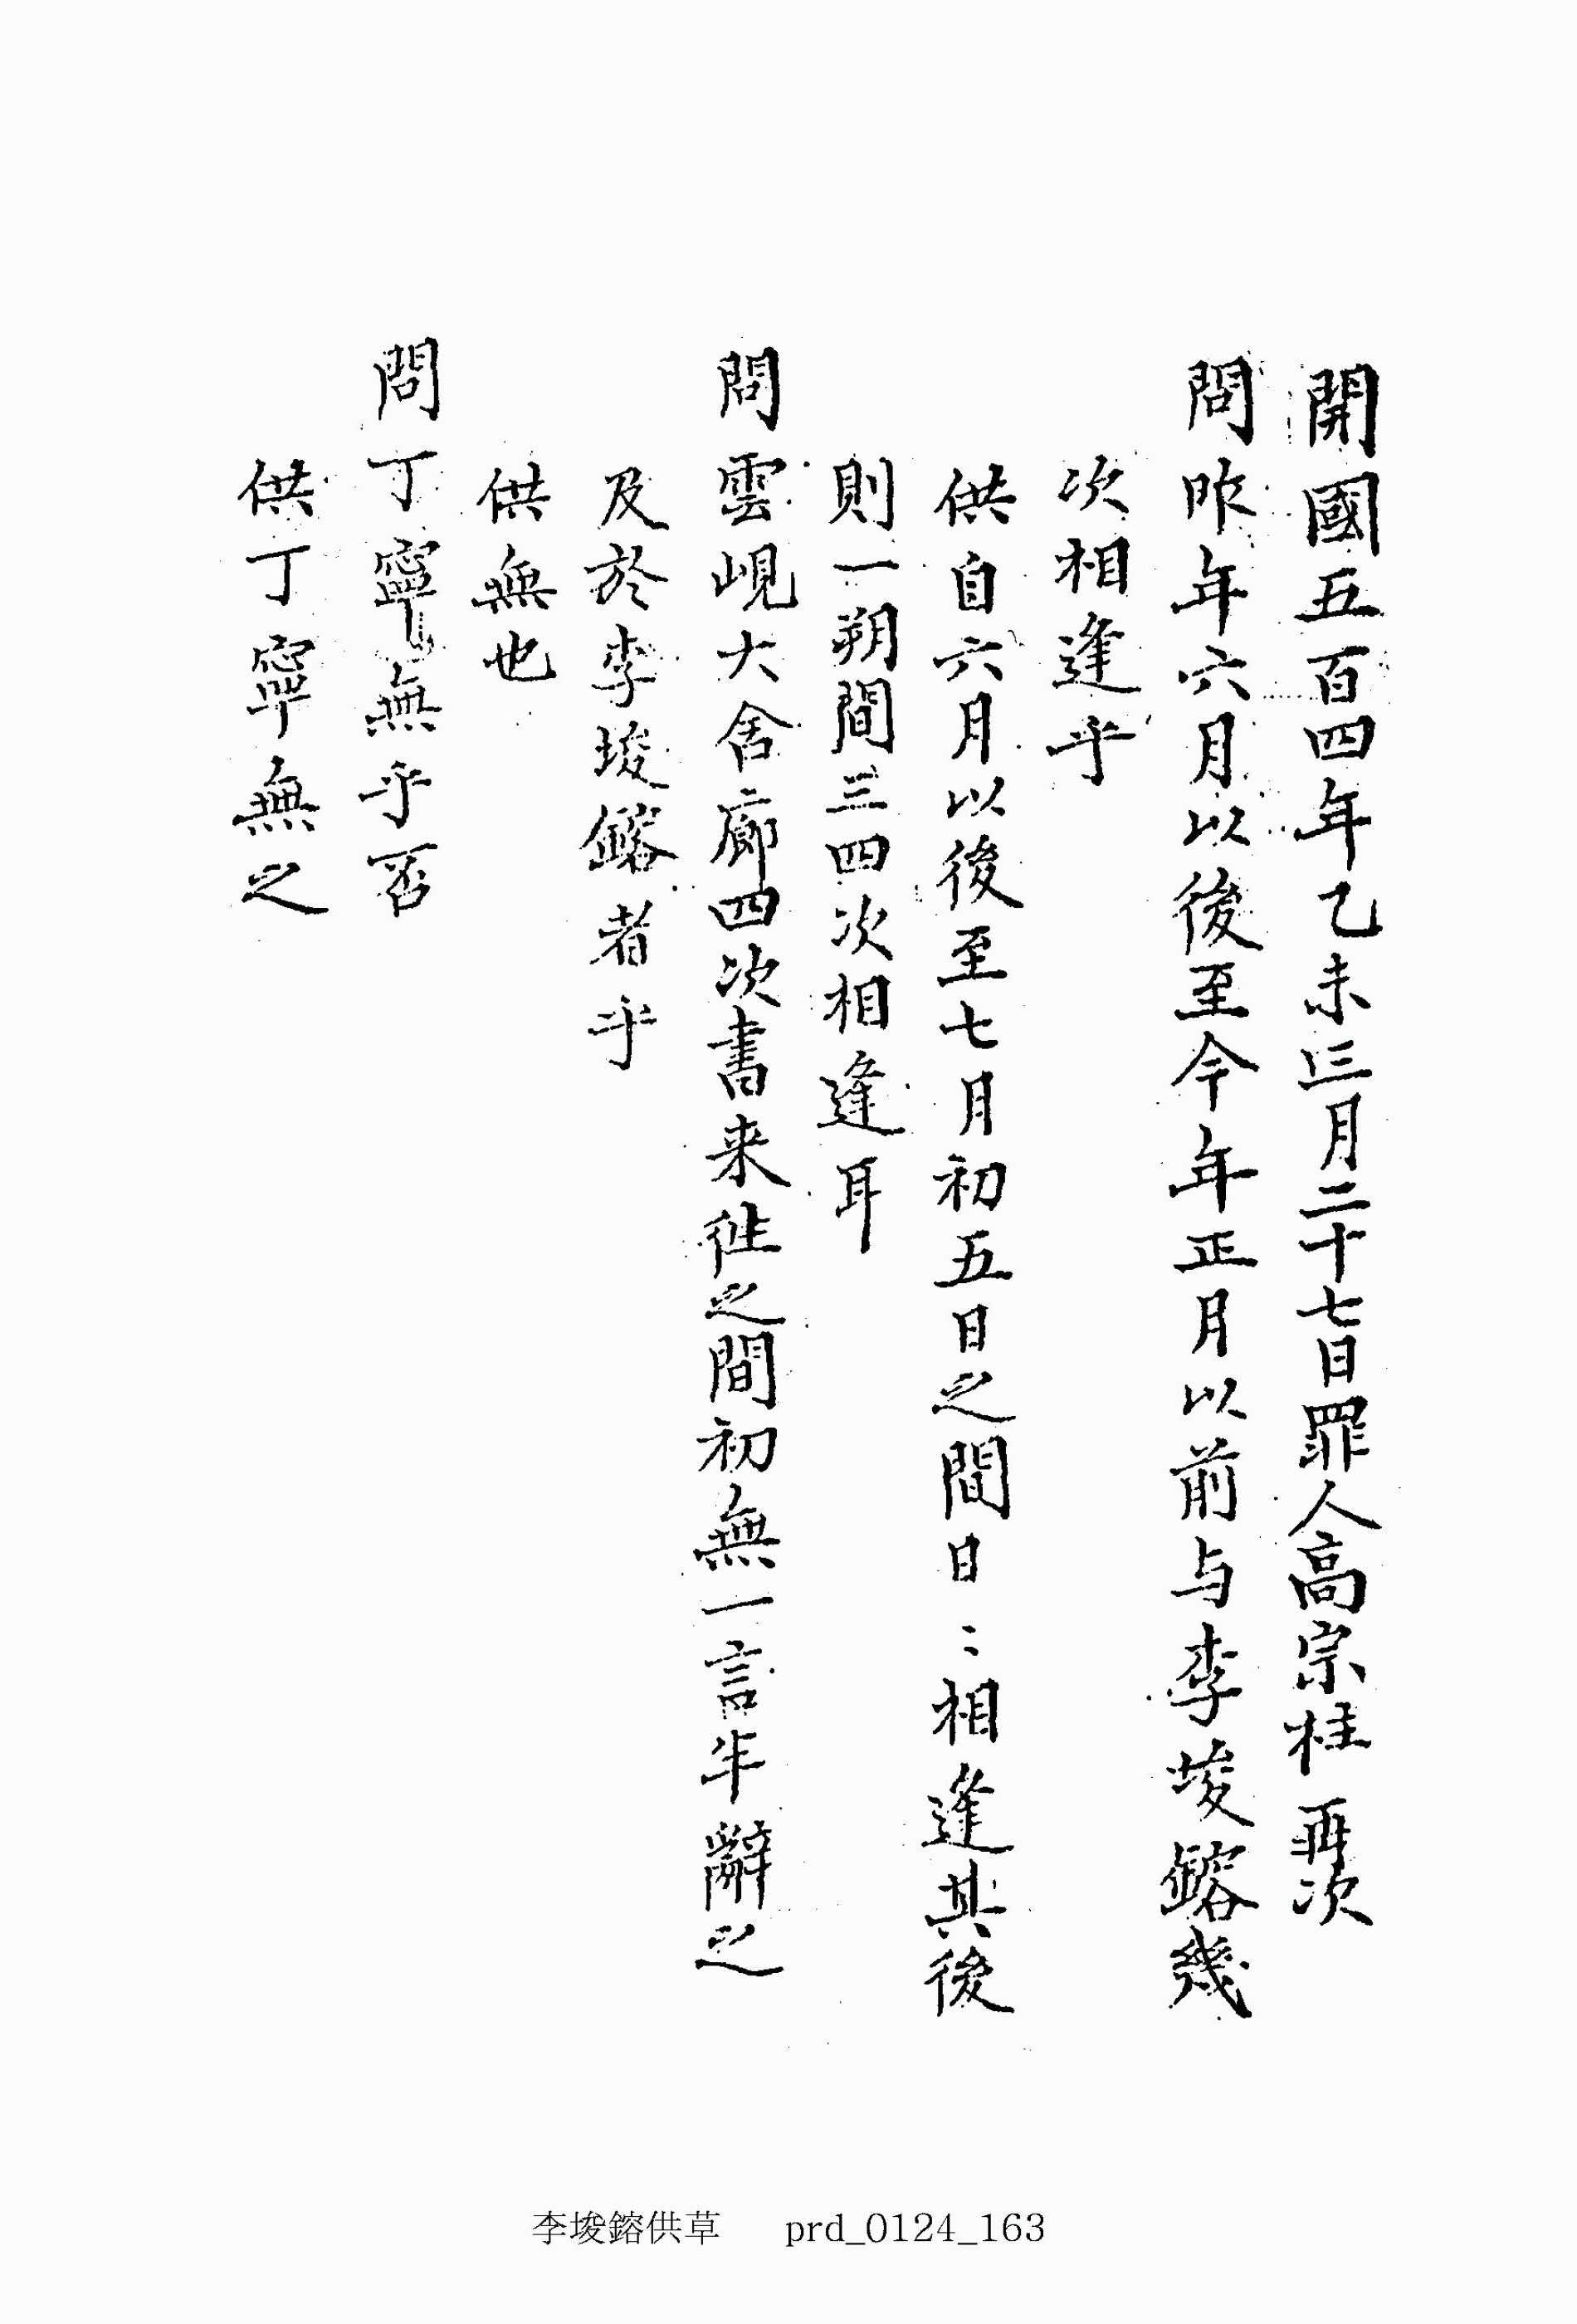 開國五百四年乙未三月二十七日罪人高宗柱再次
問昨年六月以後至今年正月以前与李埈鎔幾
次相逢乎
供自六月以後至七月初五日之間日〻相逢其後
則一朔間三四次相逢耳
問雲峴大舍廊四次書来徃之間初無一言半辭之
及於李埈鎔者乎
供無也
問丁寧無乎否
供丁寧無之
李埈鎔供草 prd_0124_163